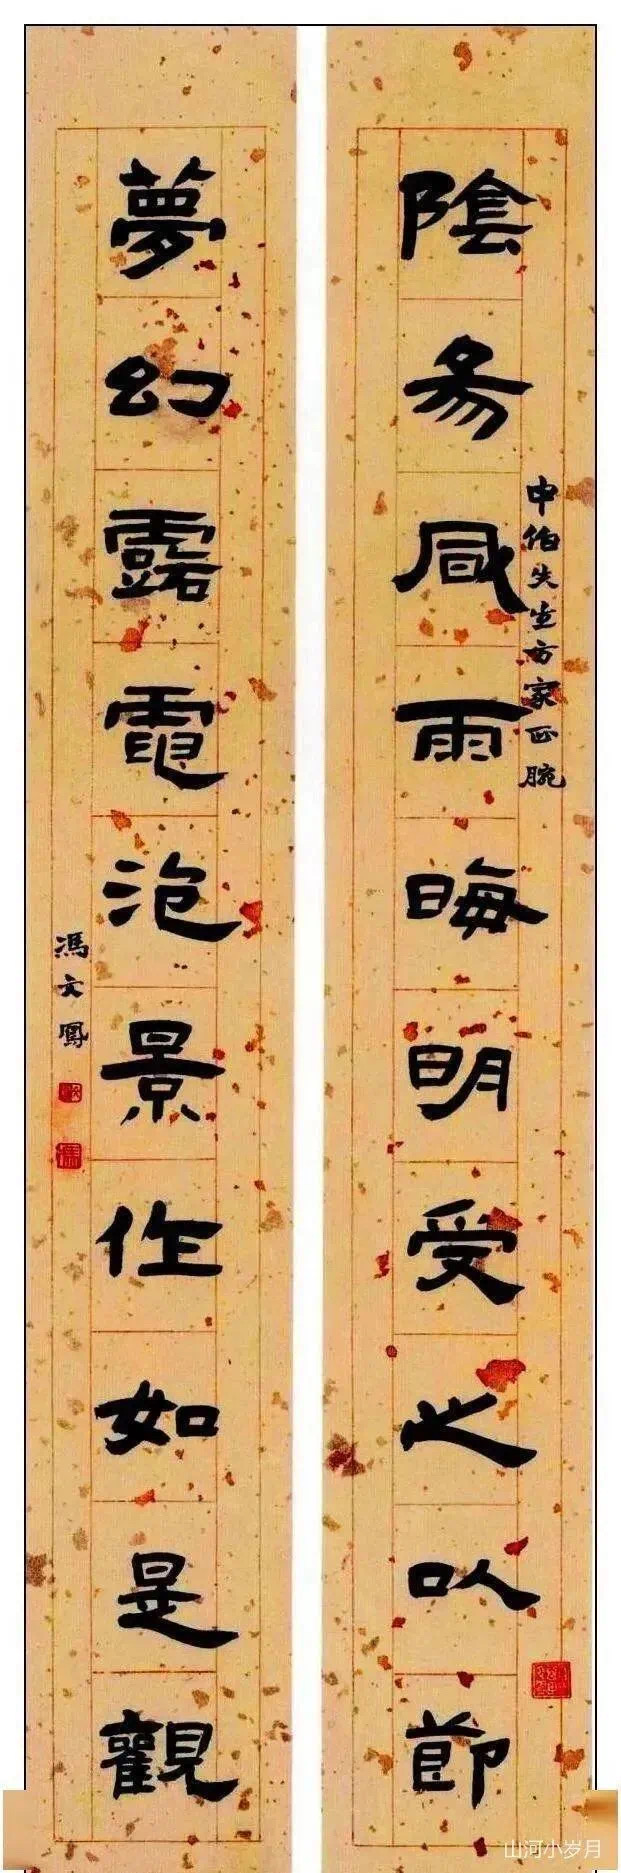 陰昜風雨晦明受之㕥節
申伯先生方家正腕
夢幻露電泡景作如是觀
馮文鳳
山河小岁月